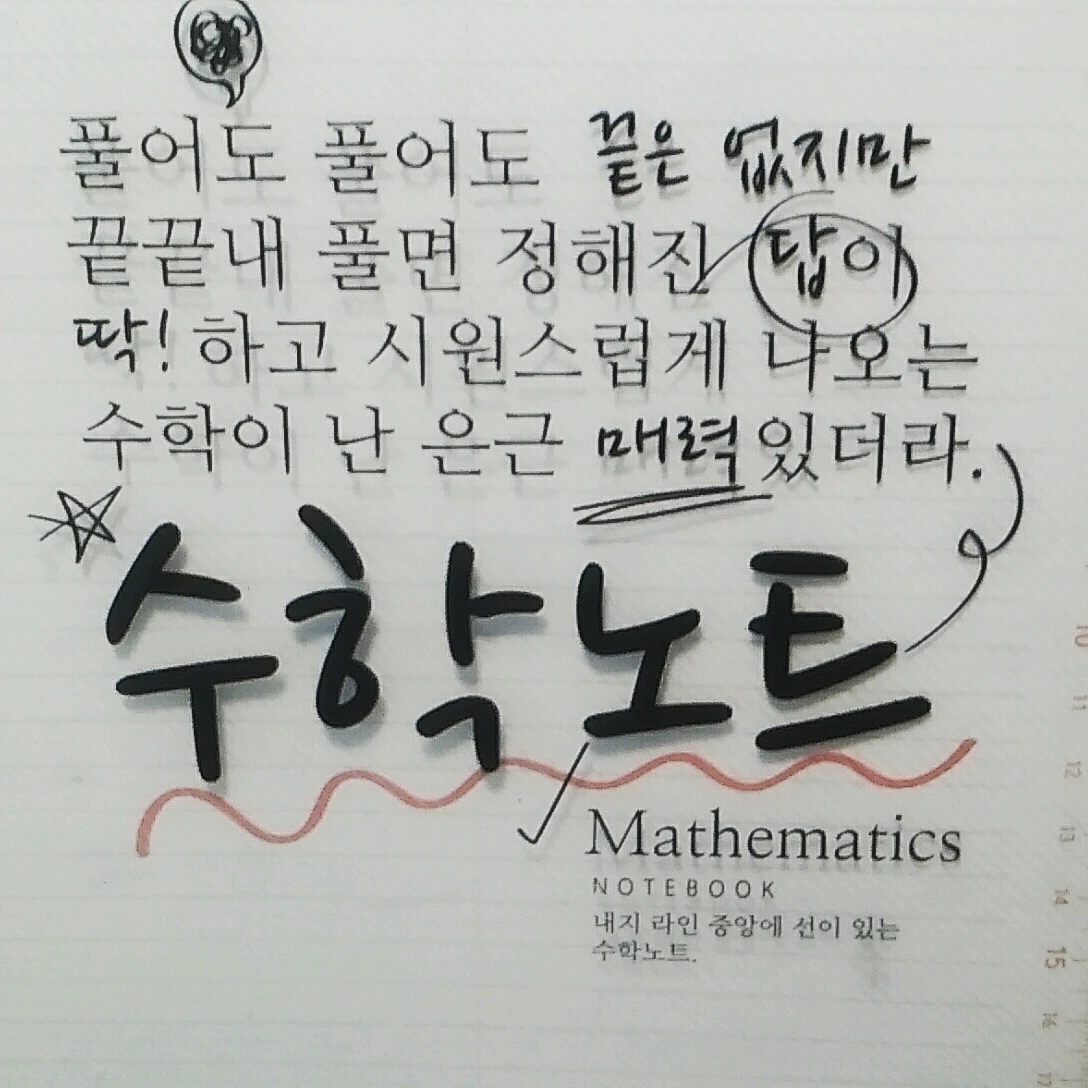 풀어도 풀어도 끝은 없지만
끝끝내 풀면 정해진 답이
딱! 하고 시원스럽게 나오는
수학이 난 은근 매력있더라.
수학노트
Mathematics
NOTEBOOK
내지 라인 중앙에 선이 있는
수학노트.
10
11
12
13
14
15
16